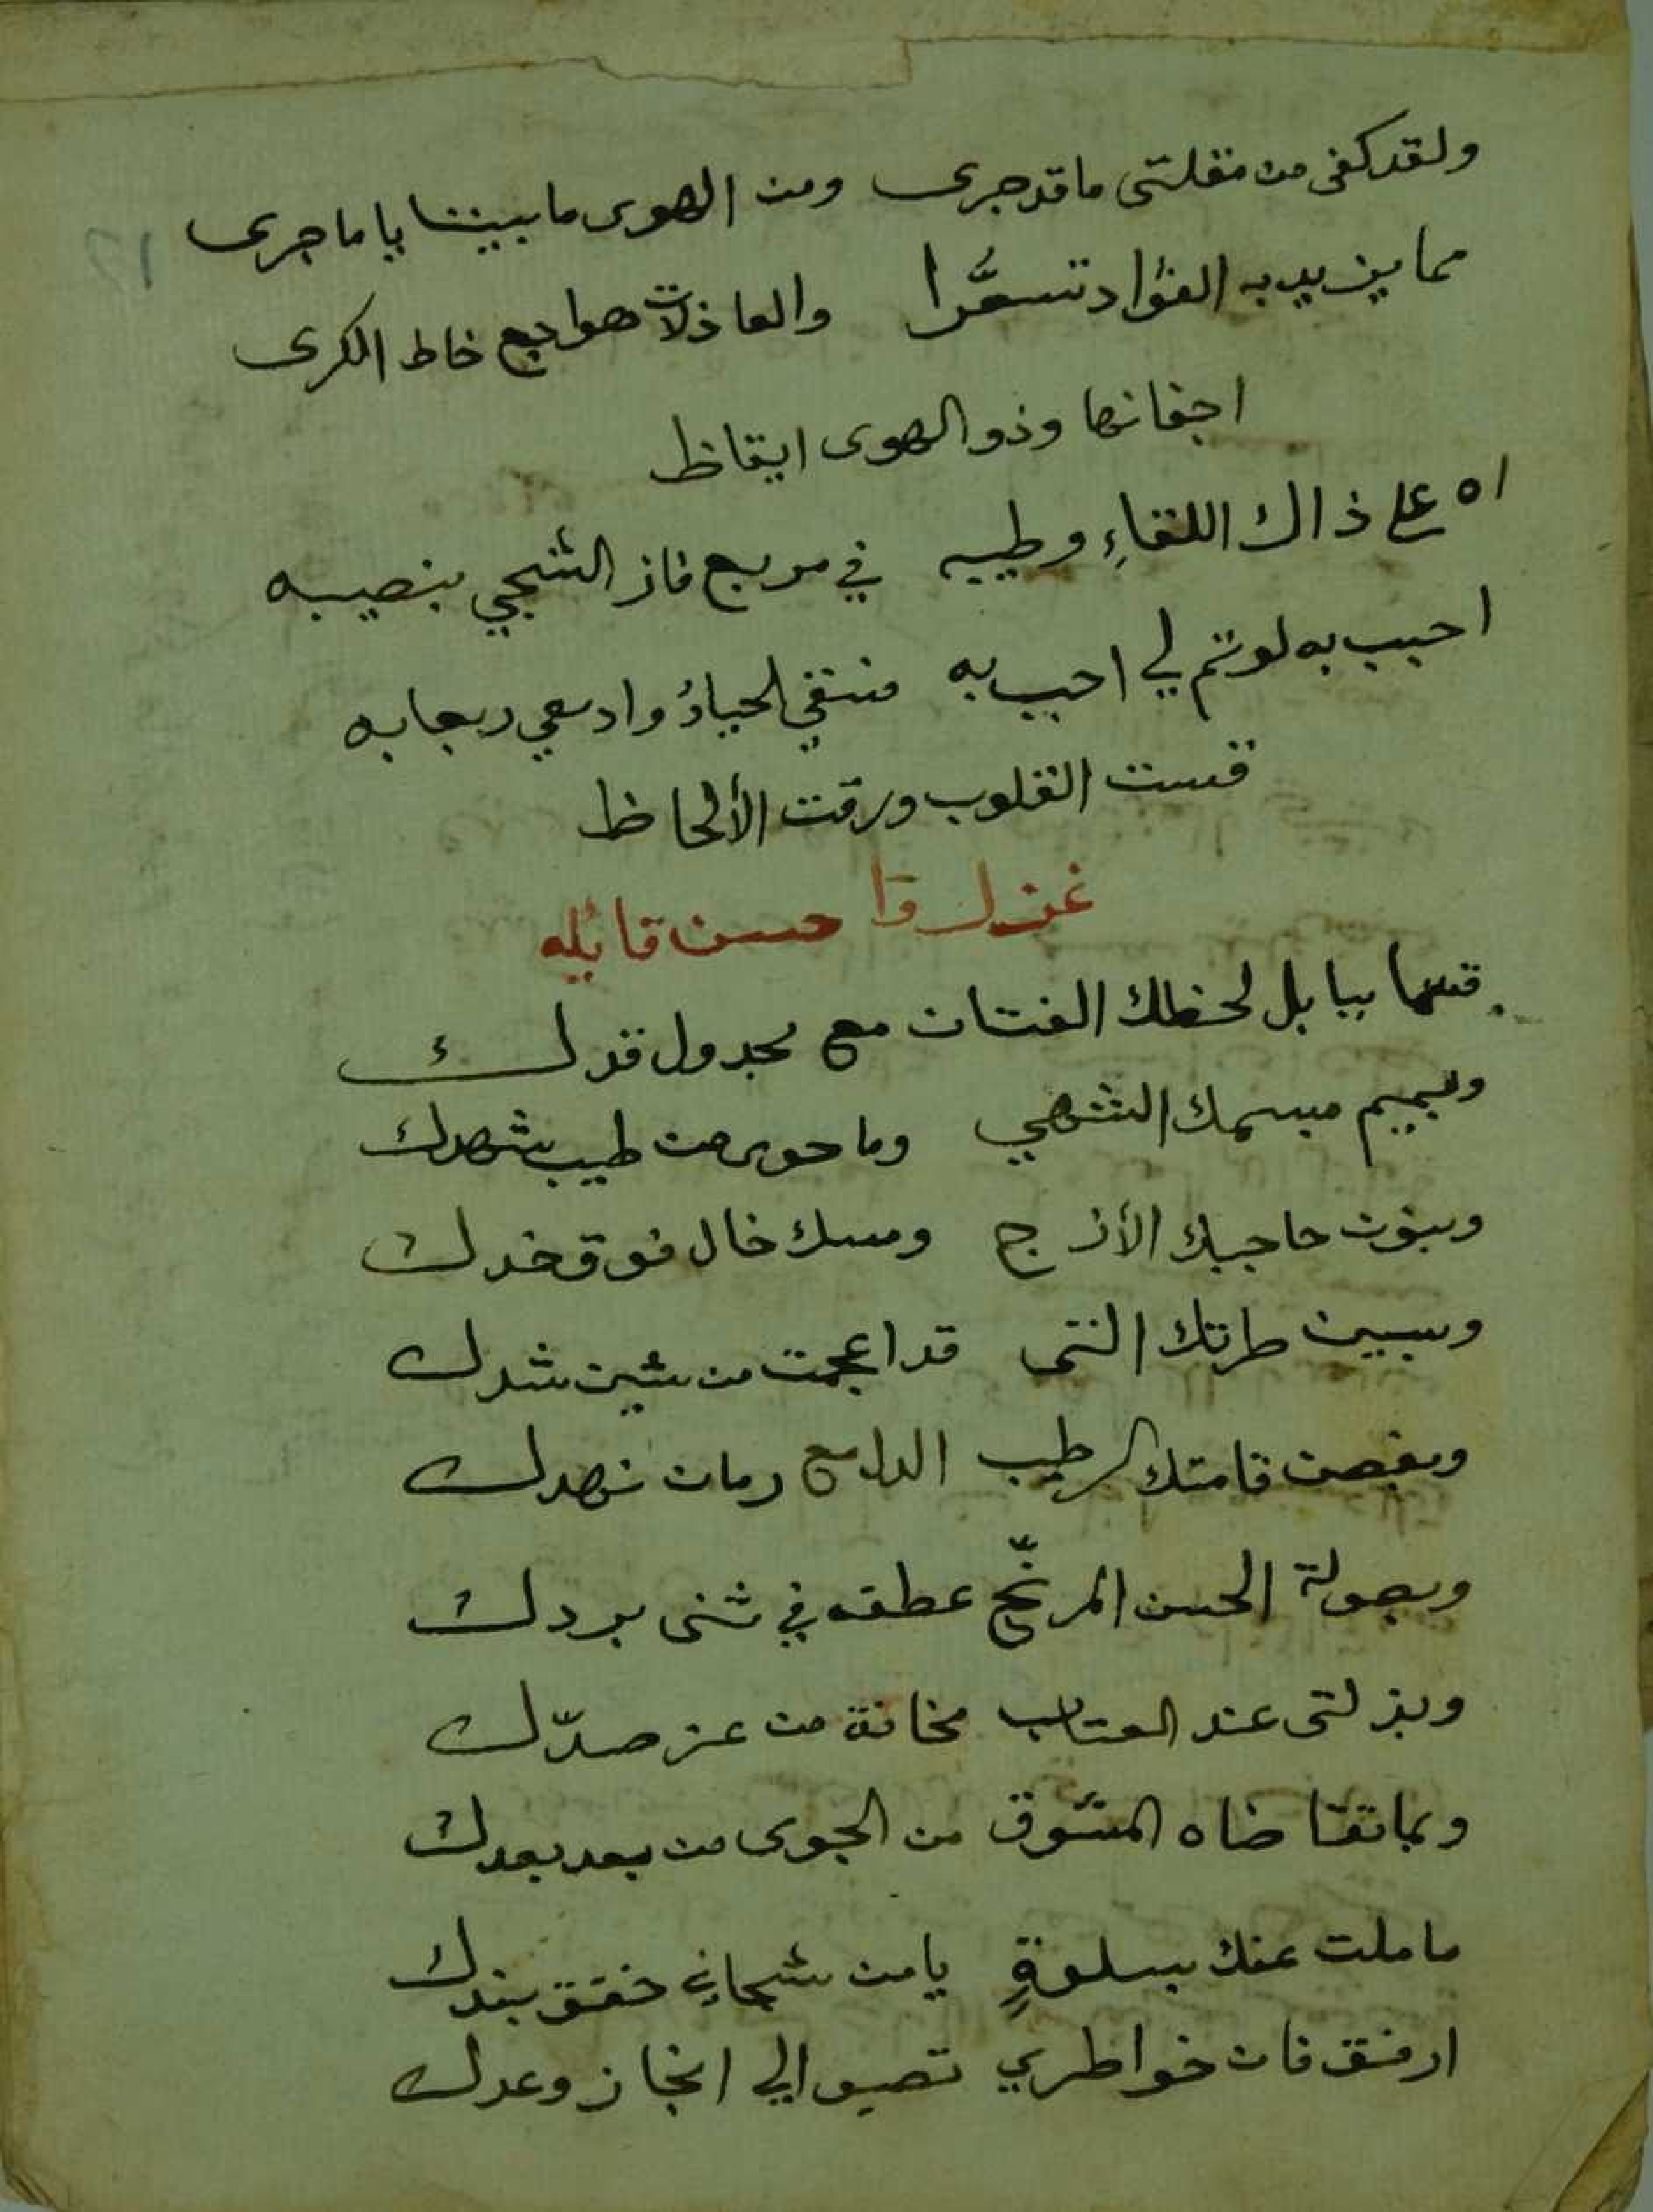 ولقد كفى من مقلتى ما قد جرى ومن الهوى ما بيننا ياما جرى
مما يزيد به الفؤاد تسعُّرا والعاذلات هواجع خاط الكرى
اجفانها وذو الهوى ايقاظ
اه على ذاك اللقاءِ وطيبه في مربع فاز الشجي بنصيبه
احبب به لو تم لي احبب به منتقي الحياؤ وادمعي ربعا به
قست القلوب ورقت الألحاظ
غزل وا حسن قايله
قسما ببابل لحظك الفتان مع مجدول قدك
وبميم مبسمك الشهي وما حوى من طيب شهدك
وبنون حاجبك الأزج ومسك خال فوق خدك
وبسين طرتك التى قد اعجمت من شين شدك
وبغصن قامتك الرطيب اليانع رمان نهدك
وبصولة الحسن المرنّح عطفه في ثنى بردك
وبذلتى عند العتاب مخافة من عز صدّك
وبما تقاضاه المشوق من الجوى من بعد بعدك
ما ملت عنك بسلوةٍ يا من شجاني خفق بندك
ارفق فان خواطري تصبو الى انجاز وعدك
١٢